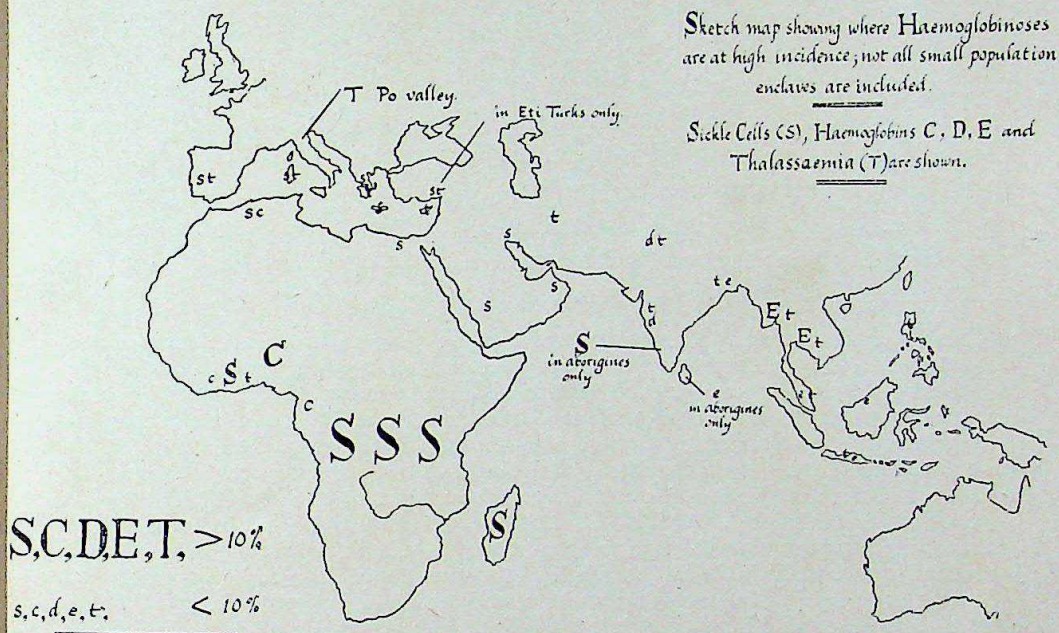 Sketch map showing where Haemoglobinoses
are at high incidence; not all small population
enclaves are included.
Sickle Cells (S), Haemoglobins C, D, E and
Thalassaemia (T) are shown.
T Po valley.
in Eti Turks only.
st
st
st
t
sc
s
t
s
d t
s
s
t e
t
d
E t
E t
S
in aborigines
only
e
in aborigines
only
e t
e
te
C
c S t
c
S S S
S
S,C,D,E,T, >10%
s,c,d,e,t. <10%